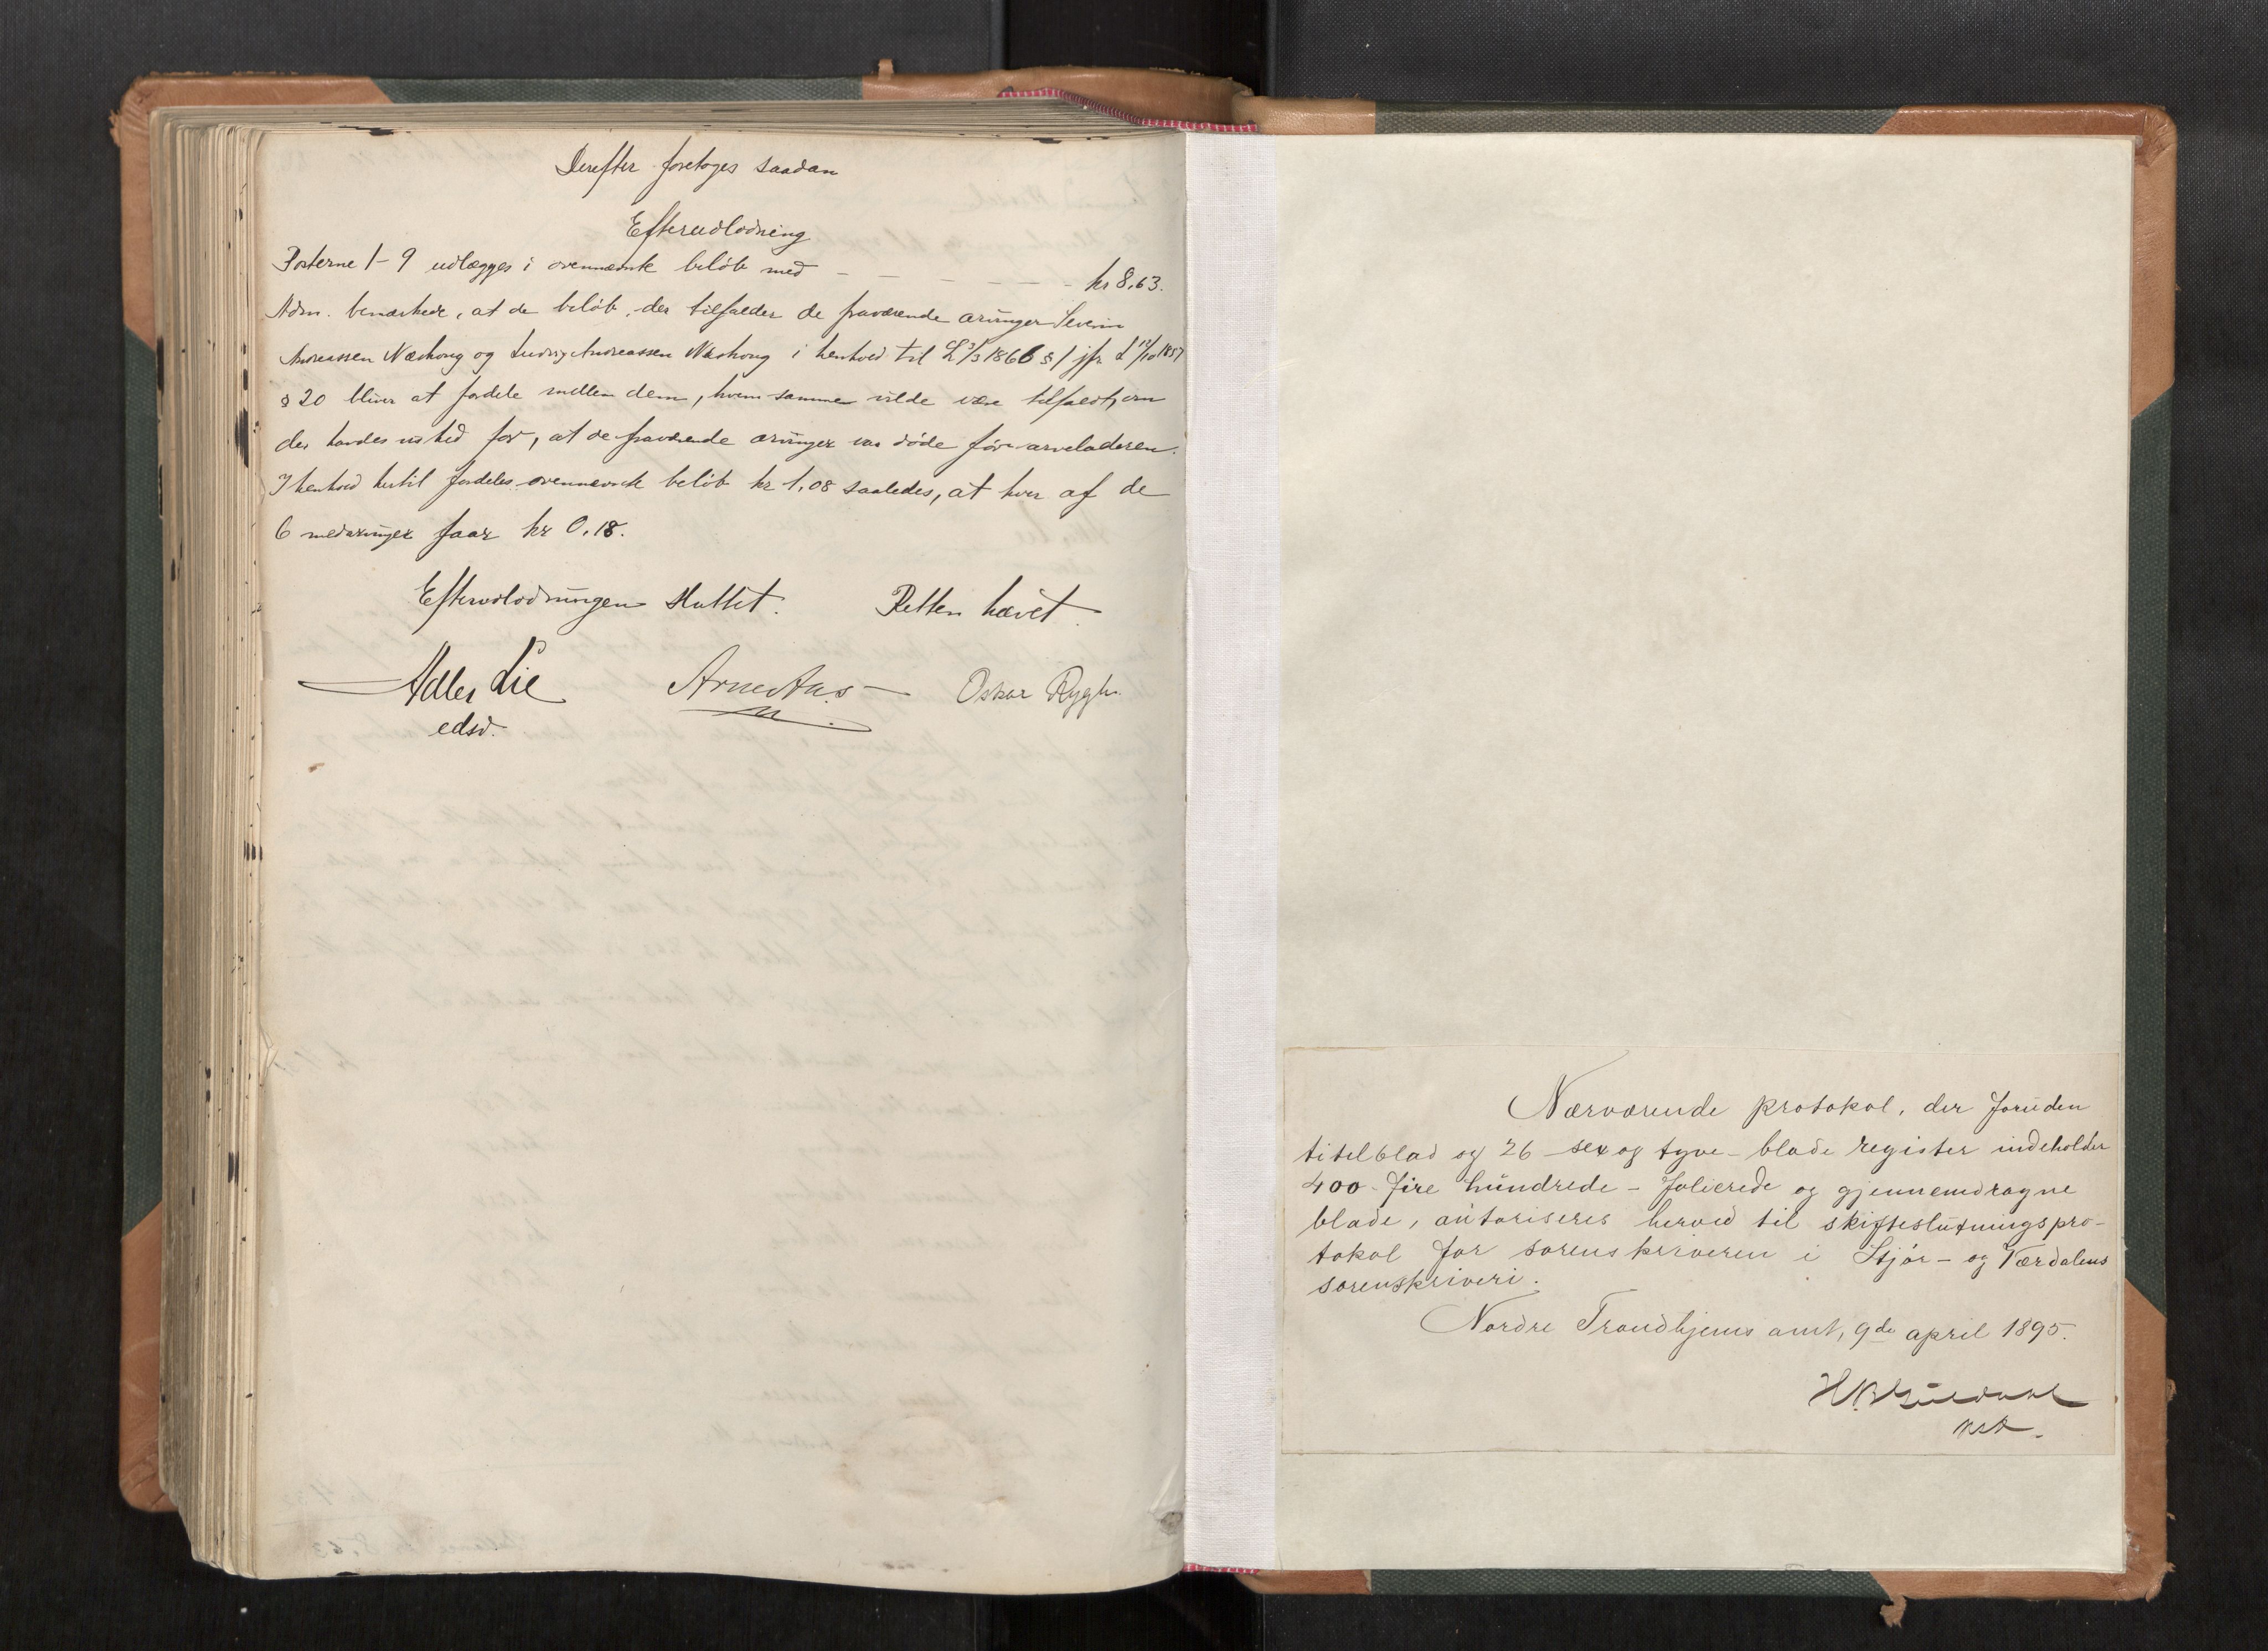 Derefter foretoges saadan
Efterudlodning
Posterne 1-9 udlægges i ovennævnte beløb med - - - - - - kr 8,63.
Adm. bemærkede, at de beløb, der tilfalder de fraværende arvinger Severin
Andreassen Næshong og Ludvig Andreassen Næshong i henhold til L 3/3 1866 § 1 jfr. L 12/10 1857
§ 20 bliver at fordele mellem dem, hvem samme vilde være tilfaldt, om
der havdes vished for, at de fraværende arvinger var døde før arveladeren.
I henhold hertil fordeles ovennævnte beløb kr 1,08 saaledes, at hver af de
6 medarvinger faar kr 0.18.
Efterudlodningen sluttet. Retten hævet.
Adler Lie Arne Aas Oskar Rygh
edsv.
Nærværende protokol, der foruden
titelblad og 26 - sex og tyve - blade register indeholder
400 - fire hundrede - folierede og gjennemdragne
blade, autoriseres herved til skifteslutningspro-
tokol for sorenskriveren i Stjør- og Værdalens
sorenskriveri.
Nordre Trondhjems amt, 9de april 1895.